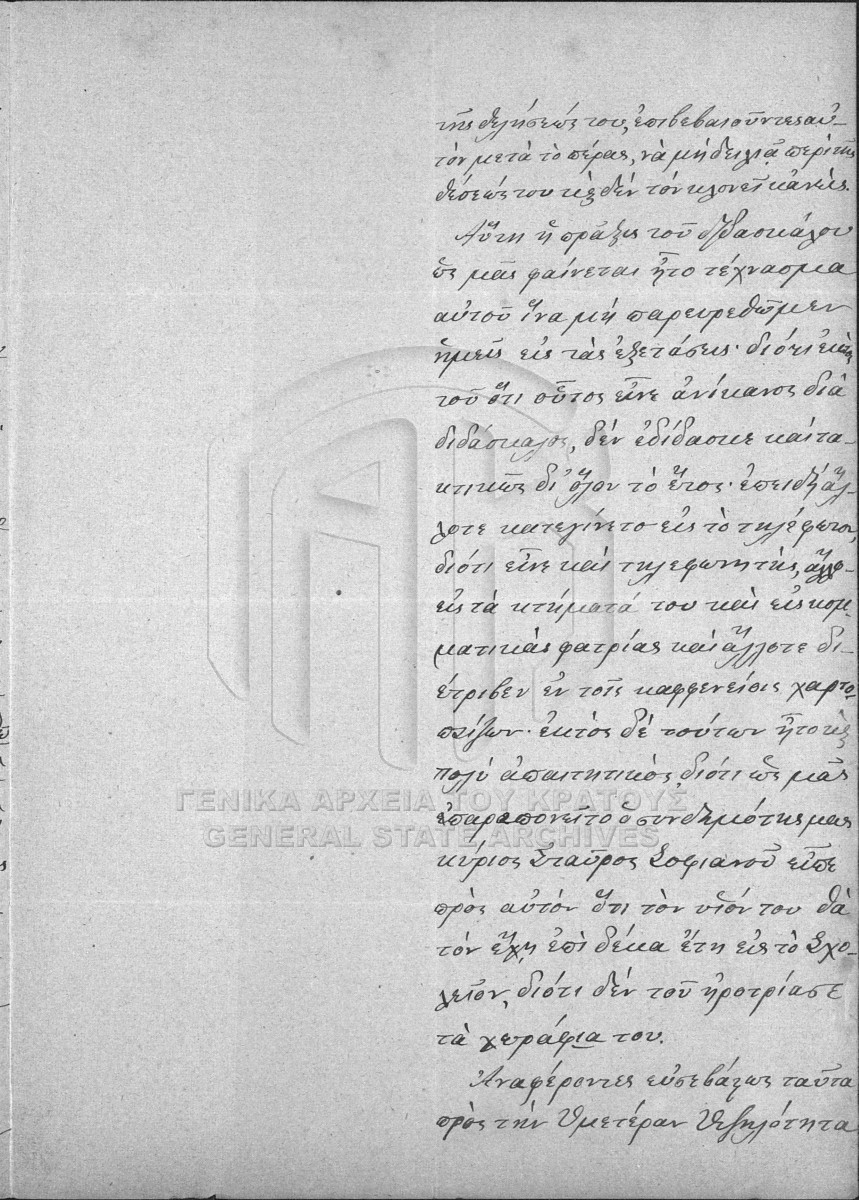 τῆς θελήσεώς του, ἐπιβεβαιοῦντες αὐ-
τὸν μετὰ τὸ πέρας, νὰ μὴ δειλιᾷ περὶ τῆς
θέσεώς του καὶ δὲν τὸν κλονεῖ κἀνείς.
Αὕτη ἡ πρᾶξις τοῦ διδασκάλου
ὡς μᾶς φαίνεται ἦτο τέχνασμα
αὐτοῦ ἵνα μὴ παρευρεθῶμεν
ἡμεῖς εἰς τὰς ἐξετάσεις· διότι ἐκτὸς
τοῦ ὅτι οὗτος εἶνε ἀνίκανος διὰ
διδάσκαλος, δὲν ἐδίδασκε καὶ τα-
κτικῶς δι' ὅλον τὸ ἔτος· ἐπειδὴ ἄλ-
λοτε κατεγίνετο εἰς τὸ τηλέφωνον,
διότι εἶνε καὶ τηλεφωνητής, ἄλλο-
εἰς τὰ κτήματά του καὶ εἰς κομ-
ματικὰς φατρίας καὶ ἄλλοτε δι-
έτριβεν ἐν τοῖς καφφενείοις χαρτο-
παίζων· ἐκτὸς δὲ τούτων ἦτο καὶ
πολὺ ἀπαιτητικὸς διότι ὡς μᾶς
ἐπαραπονεῖτο ὁ συνδημότης μας
κύριος Σταῦρος Σοφιανοῦ εἶπε
πρὸς αὐτὸν ὅτι τὸν υἱόν του θὰ
τὸν ἔχῃ ἐπὶ δέκα ἔτη εἰς τὸ Σχο-
λεῖον, διότι δὲν τοῦ ἠροτρίασε
τὰ χωράφια του.
Ἀναφέροντες εὐσεβάστως ταῦτα
πρὸς τὴν Ὑμετέραν Ὑψηλότητα
ΓΕΝΙΚΑ ΑΡΧΕΙΑ ΤΟΥ ΚΡΑΤΟΥΣ
GENERAL STATE ARCHIVES